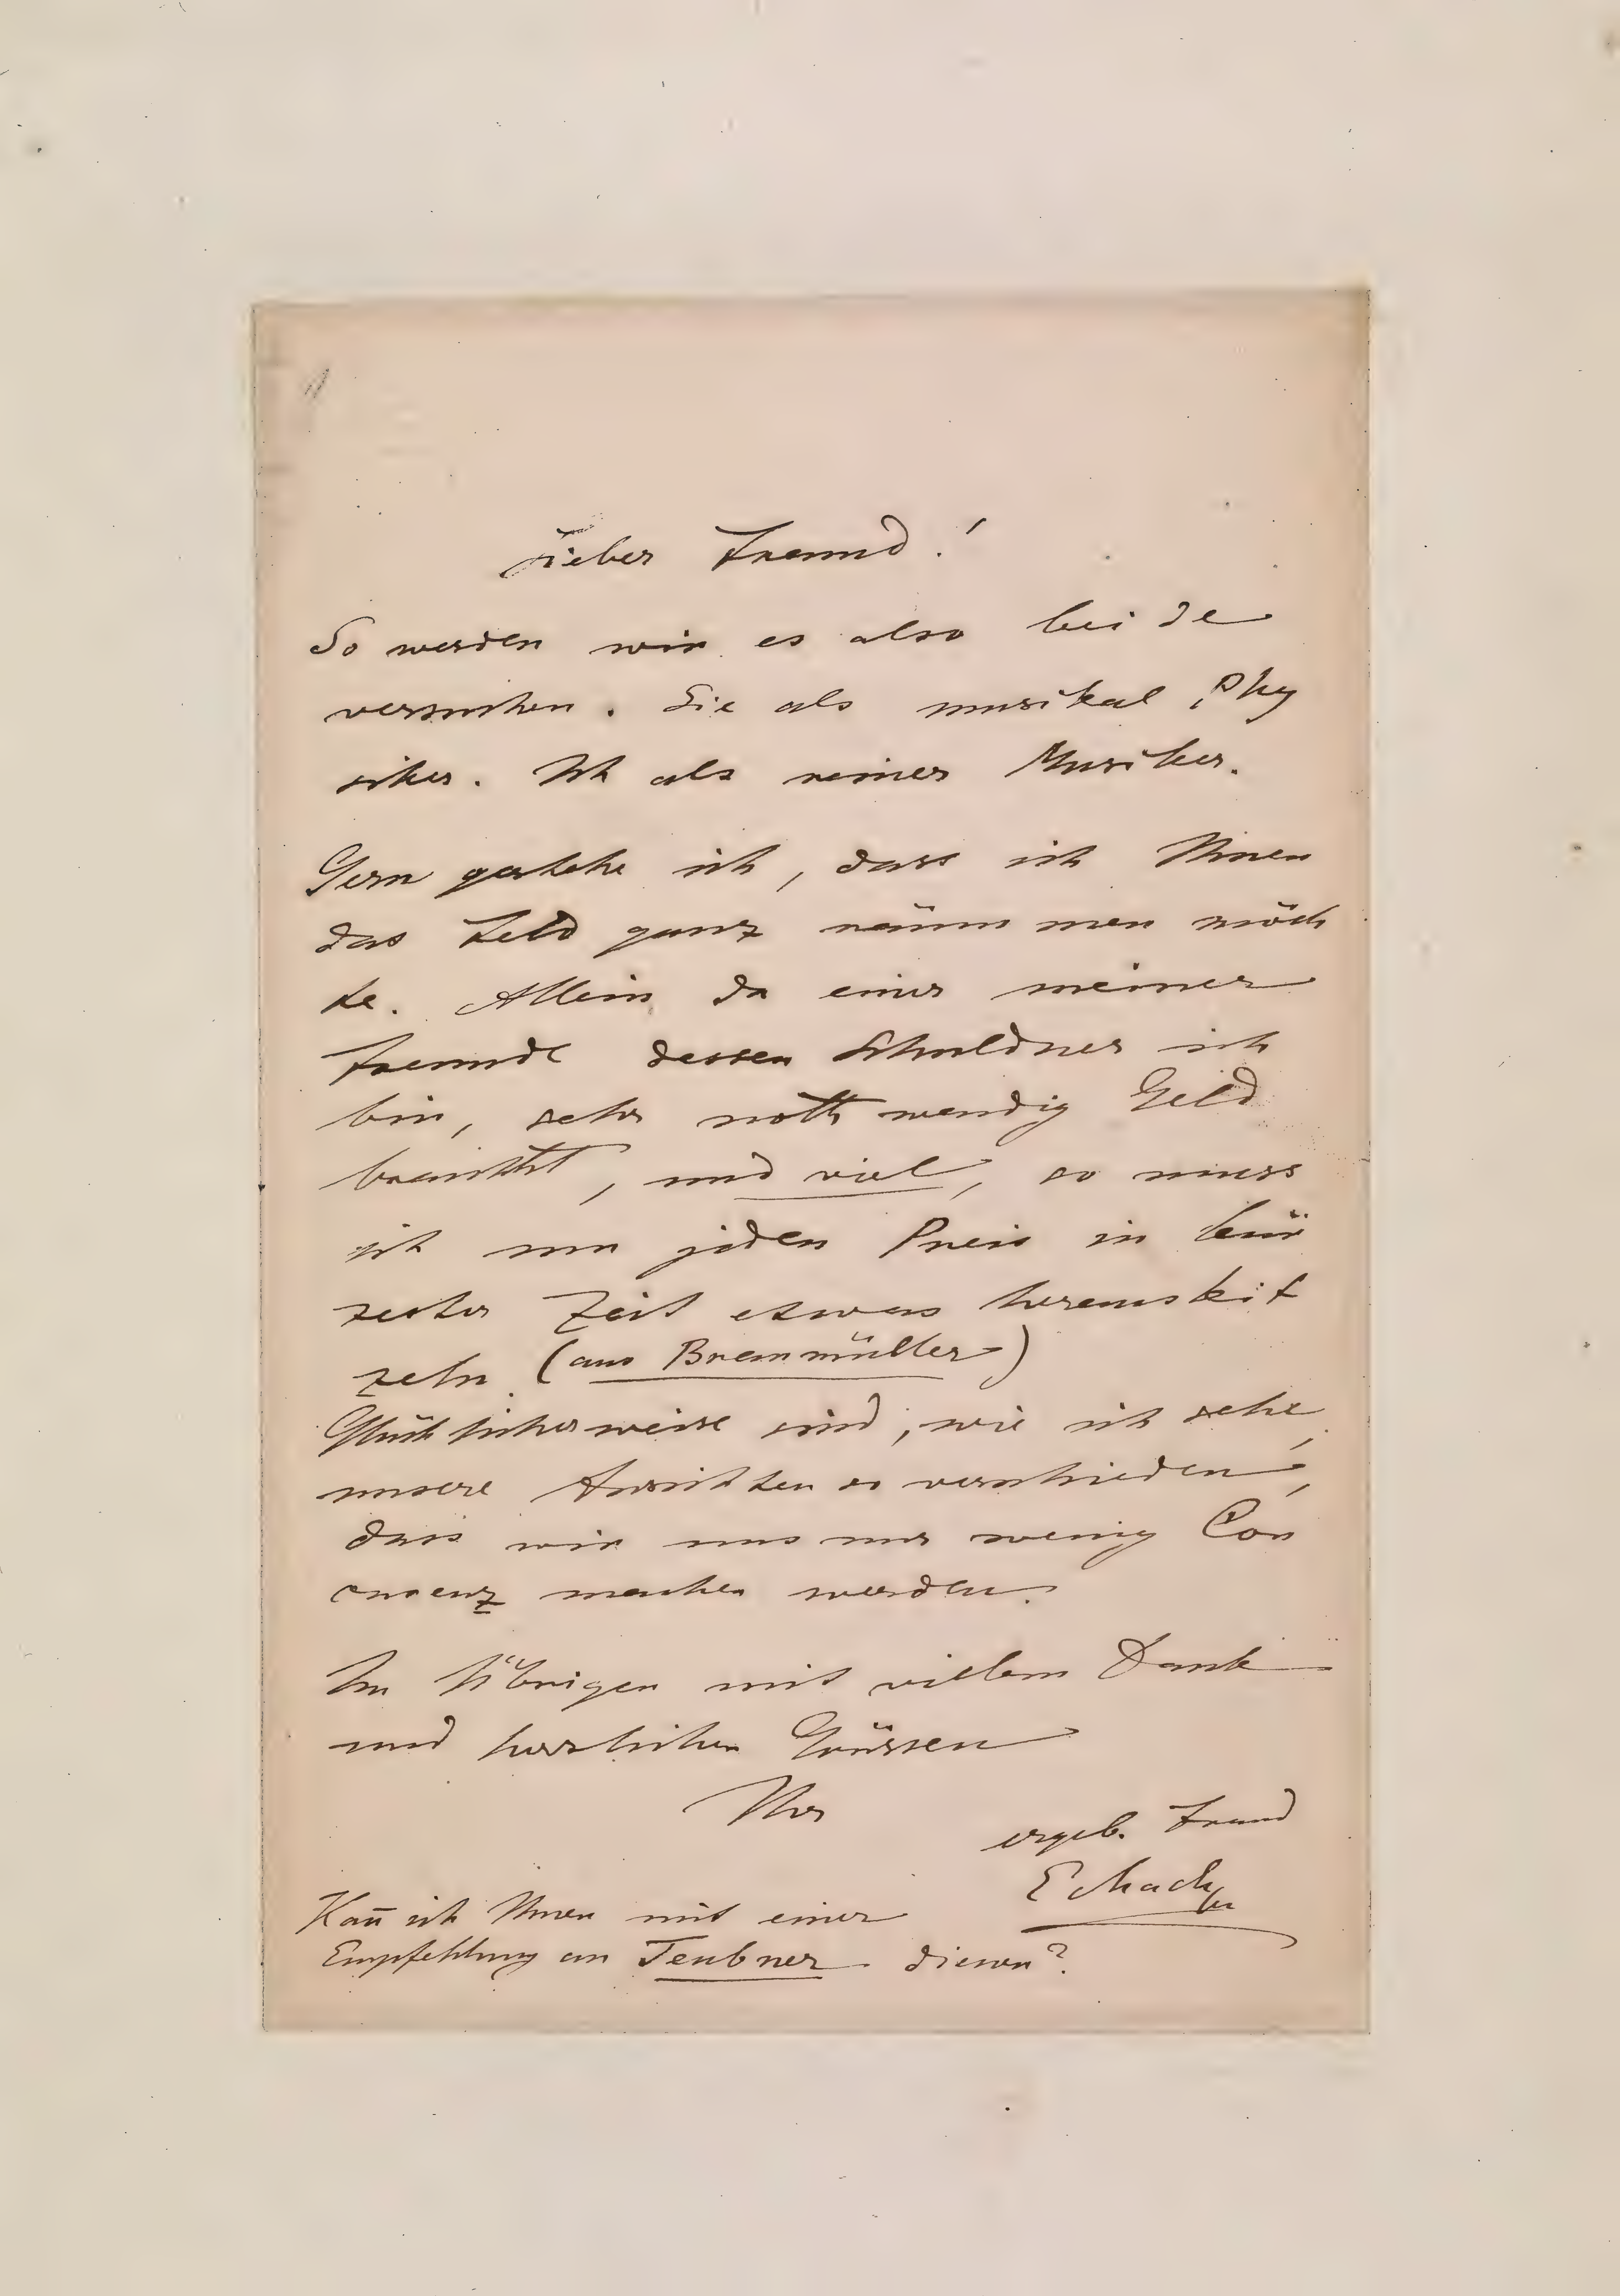 Lieber Freund!
So werden wir es also beide
versuchen. Sie als musikal. Phy
siker. Ich als reiner Musiker.
Gern gestehe ich, dass ich Ihnen
das Feld ganz räumen möch
te. Allein da einer meiner
Freunde dessen Schuldner ich
bin, sehr nothwendig Geld
braucht, und viel, so muss
ich um jeden Preis in kür
zester Zeit etwas herauskit
zeln (aus Braumüller)
Glücklicherweise sind, wie ich sehe,
unsere Ansichten so verschieden,
dass wir uns nur wenig Con
currenz machen werden.
Im Übrigen mit vielem Dank
und herzlichen Grüssen
Ihr
ergeb. Freund
E Mach
Kañ ich Ihnen mit einer
Empfehlung an Teubner dienen?